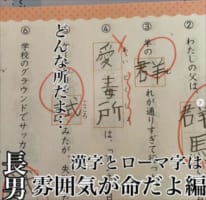 ② わたしの父は、
群馬
③ 羊の
群
れが通りすぎて
④
愛毒所
は、
⑥ 学校のグラウンドでサッカ
どんな所だよ…
漢字とローマ字は
長男 雰囲気が命だよ編